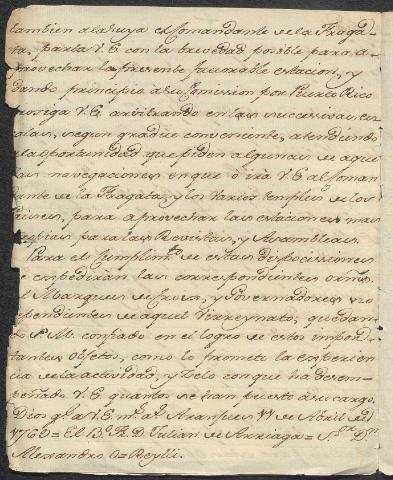 tambien a la suya el Comandante de la Fraga-
ta, parta V.E. con la brevedad posible para a-
provechar la presente favorable estacion, y
dando principio a su Comision por Puerto Rico
prosiga V.E. arbitrando en las succesivas es-
calas, segun gradue conveniente, atendiendo
a la oportunidad que piden algunas de aque
llas navegaciones en que oira V.E. al Coman
dante de la Fragata, y los varios temples de los
Paises, para aprovechar las estaciones mas
propias para las Revistas, y Asambleas.
Para el Cumplimto. de estas disposiciones
se expediran las correspondientes ordns.
al Marques de Croix, y Governadores no
dependientes de aquel Virreynato, quedan-
do S.M. confiado en el logro de estos impor-
tantes objetos, como lo promete la experien
cia de la actividad, y Zelo con que ha desem-
peñado V.E. quantos se han puesto a su cargo.
Dios ge. a V.E. ms. as. Aranjuez de Abril de
1765 = El Bo. Fr. D. Julian de Arriaga = Sor. Dn.
Alexandro O=Reylli.